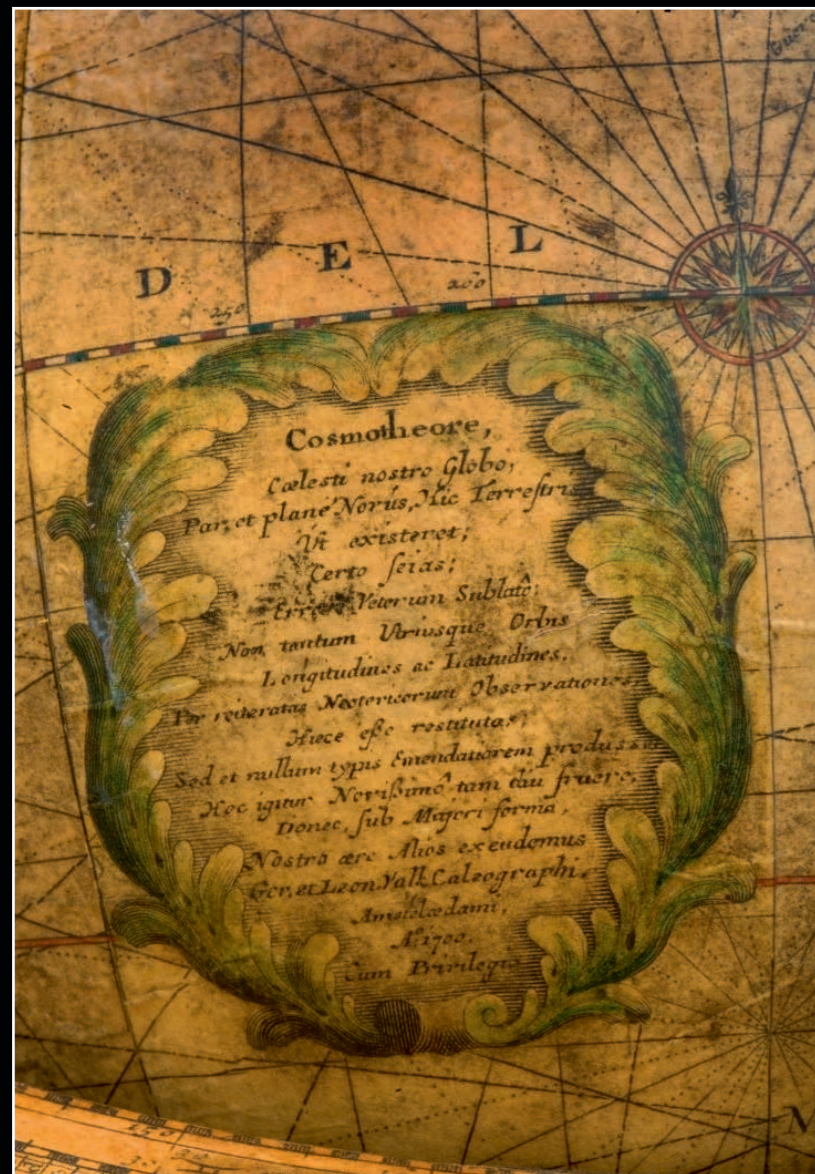 D E L
250
200
Cosmotheore,
Cœlesti nostro Globo,
Par, et plané Novús, Hic Terrestris
Ut existeret;
Certo scias;
Errore Veterum Sublatô;
Non tantum Utriusque Orbis
Longitudines ac Latitudines,
Per reiteratas Neotericorum Observationes,
Hicce eſse restitutas;
Sed et nullum typis Emendatiorem prodiisse
Hoc igitur Noviſsimô tam diu fruere,
Donec, sub Majori formâ,
Nostro ære Alios excudemus
Ger. et Leon. Valk Calcographi.
Amstelædami,
Aº. 1700.
Cum Privilegio